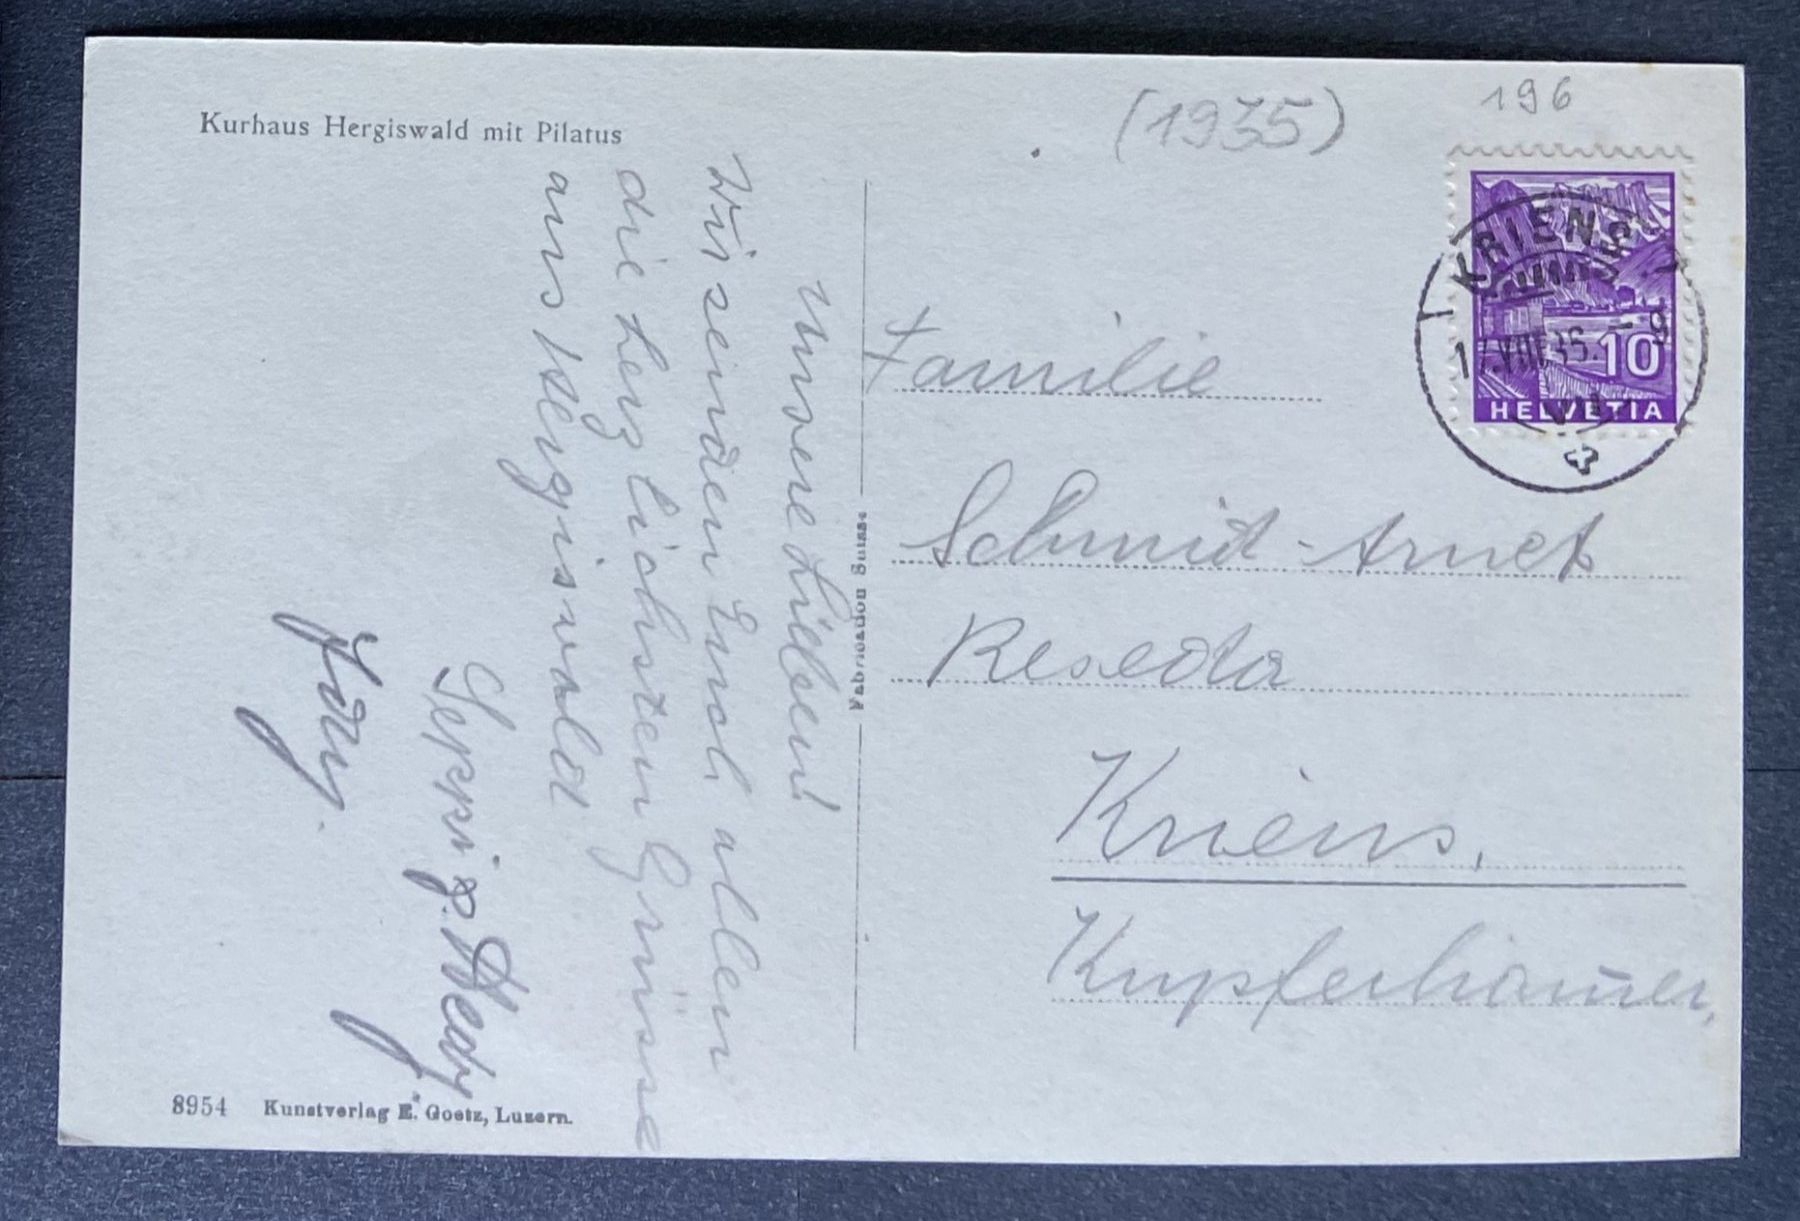 Kurhaus Hergiswald mit Pilatus
(1935)
196
KRIENS
17.VIII.35. - 9
10
HELVETIA
Unsere Lieben!
Wir senden Euch allen
die herzlichsten Grüsse
aus Hergiswald
Seppi &
Familie
Schmid-Arnet
Reseda
Kriens,
Kupferhammer,
Fabrication Suisse
8954 Kunstverlag E. Goetz, Luzern.